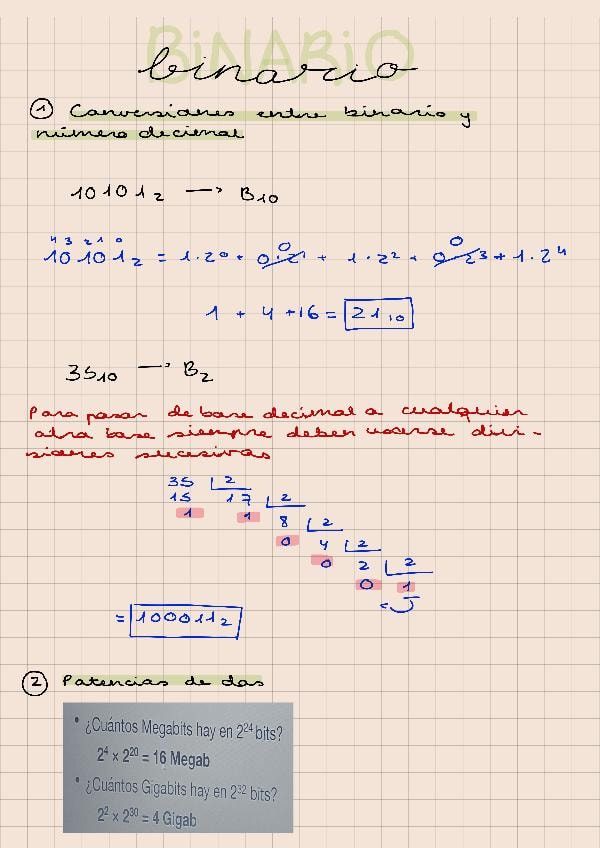 BINARIO
binario
① Conversiones entre binario y
número decimal
10101₂ → B₁₀
4 3 2 1 0
10101₂ = 1·2⁰ + 0·2¹ 0 + 1·2² + 0·2³ 0 + 1·2⁴
1 + 4 + 16 = 21₁₀
35₁₀ → B₂
Para pasar de base decimal a cualquier
otra base siempre deben usarse divi-
siones sucesivas
35 2
15 17 2
1 1 8 2
0 4 2
0 2 2
0 1
= 100011₂
② Potencias de dos
• ¿Cuántos Megabits hay en 2²⁴ bits?
2⁴ x 2²⁰ = 16 Megab
• ¿Cuántos Gigabits hay en 2³² bits?
2² x 2³⁰ = 4 Gigab